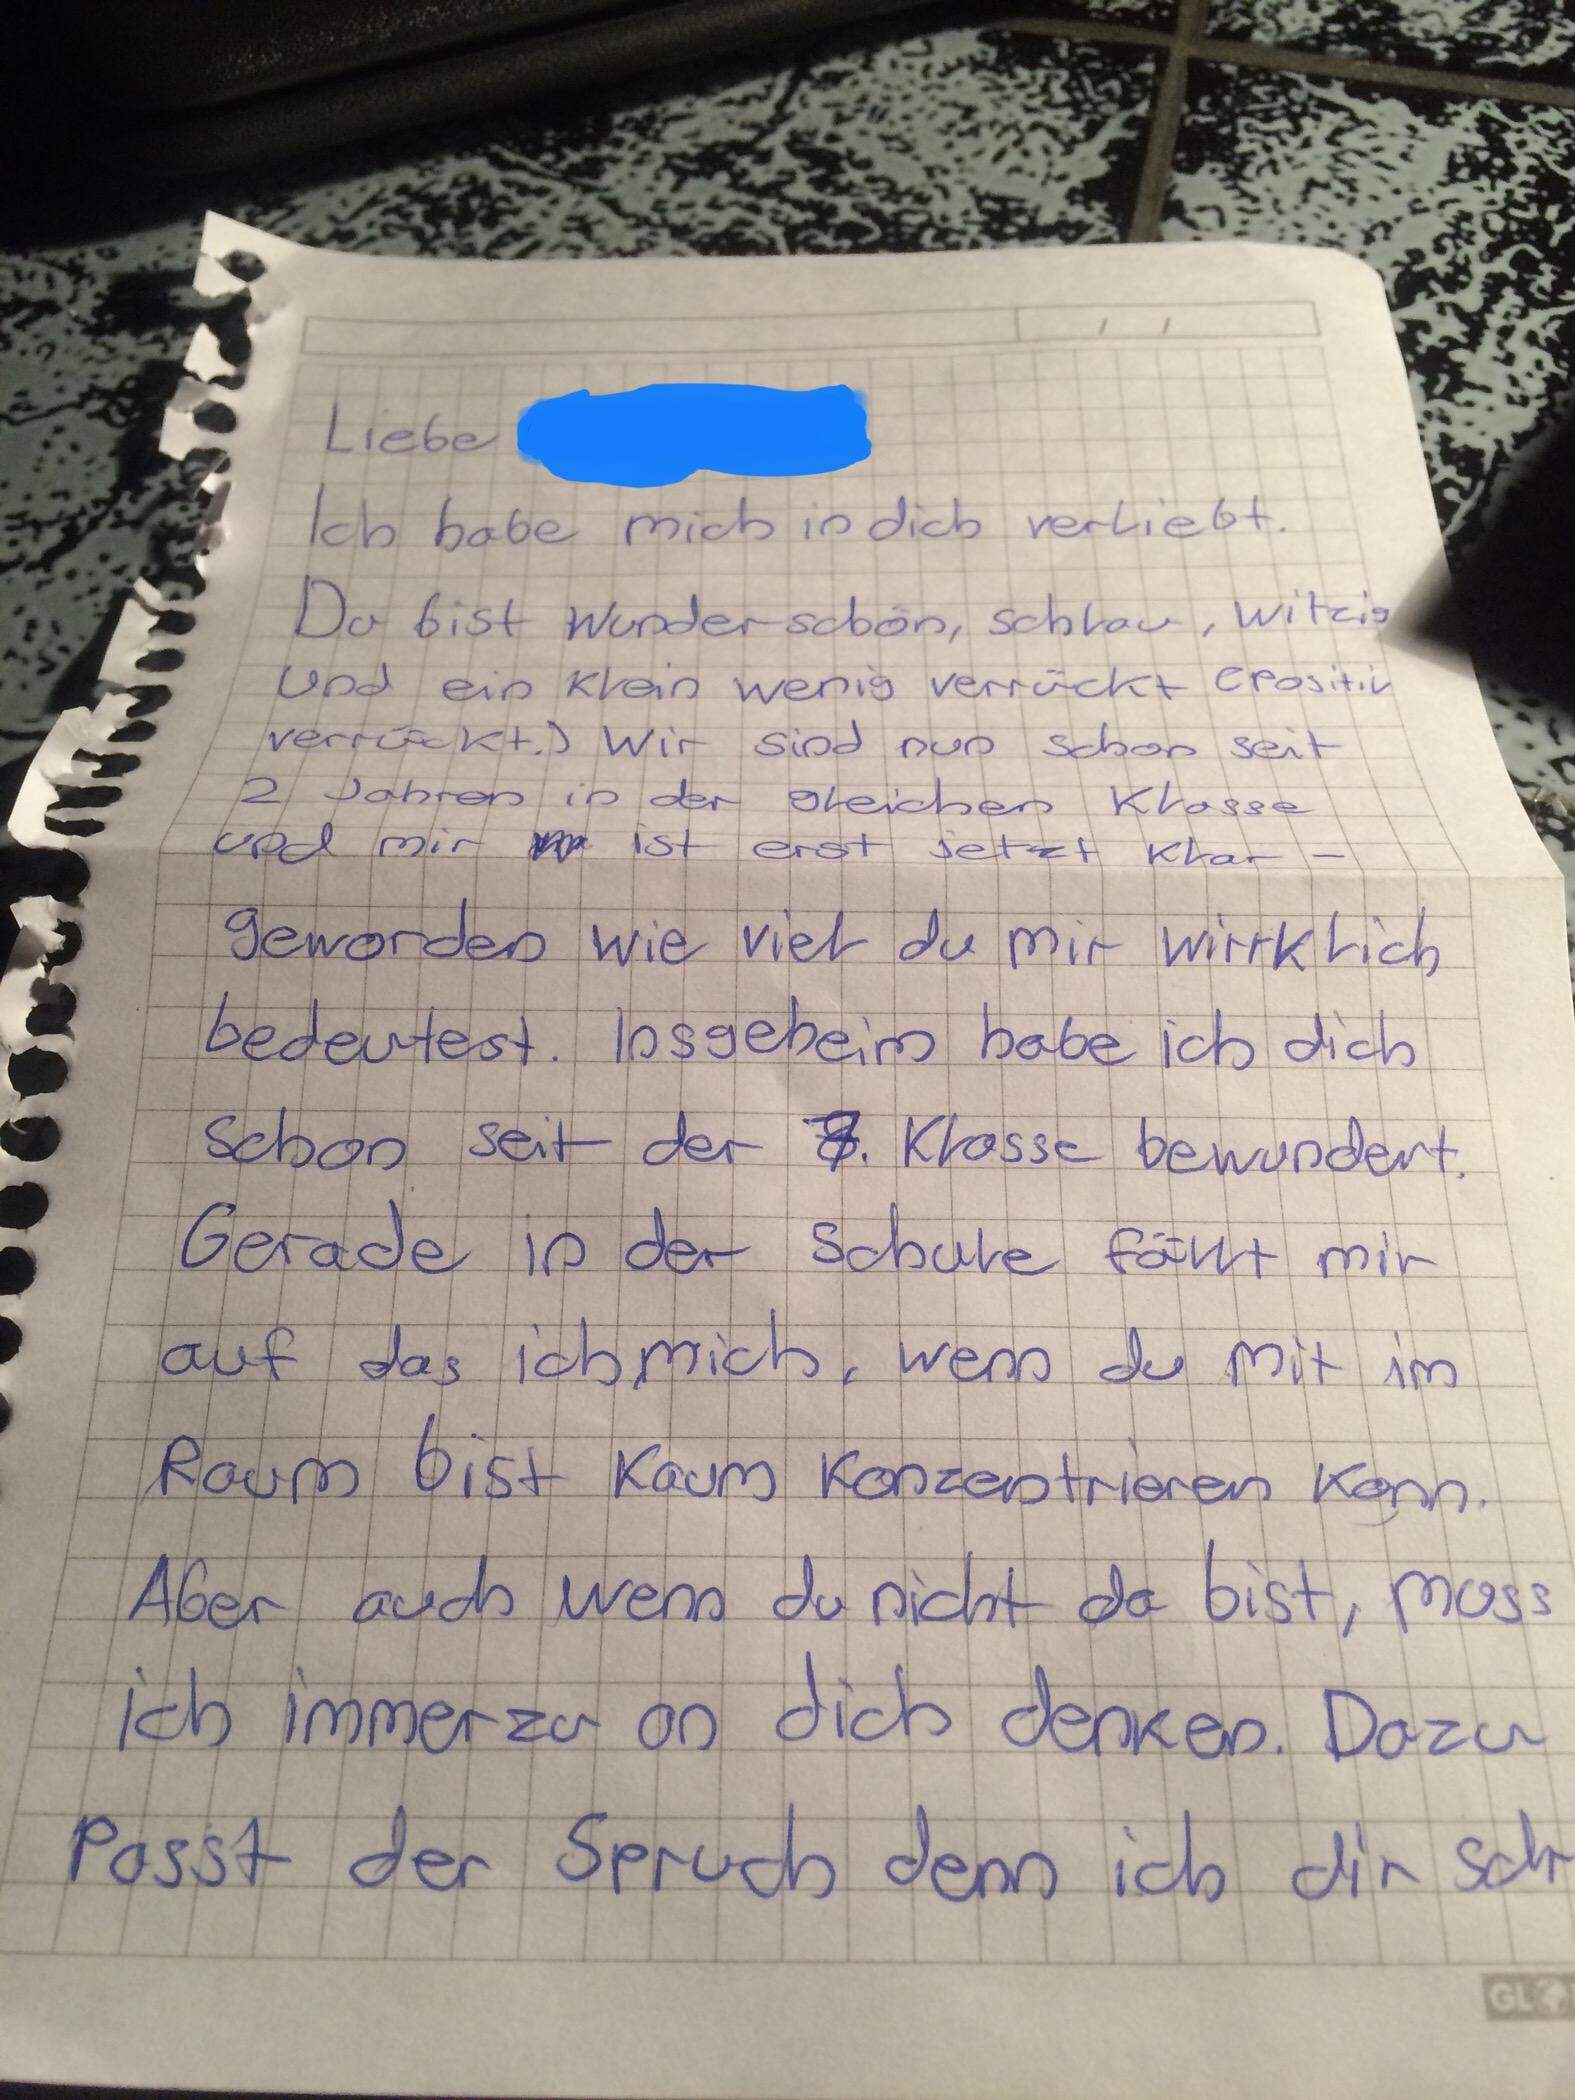 Liebe
Ich habe mich in dich verliebt.
Du bist wunderschön, schlau, witzig
und ein klein wenig verrückt (Positiv
verrückt.) Wir sind nun schon seit
2 Jahren in der gleichen Klasse
und mir ist erst jetzt klar-
geworden wie viel du mir wirrklich
bedeutest. Insgeheim habe ich dich
schon seit der Klasse bewundert.
Gerade in der Schule fällt mir
auf das ich mich, wenn du mit im
Raum bist kaum konzentrieren kann.
Aber auch wenn du nicht da bist, muss
ich immerzu an dich denken. Dazu
Passt der Spruch denn ich dir schr